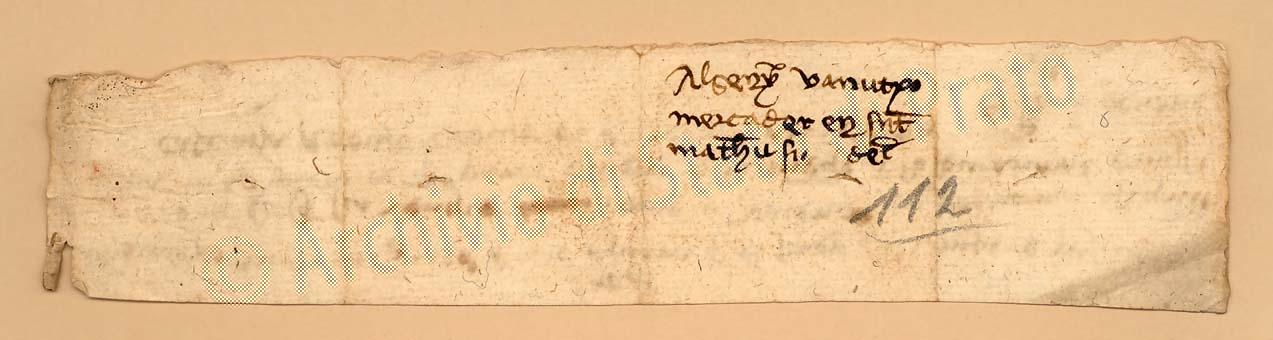 Algery vanutxo
mercader en sant
matheu sia det
112
© Archivio di Stato di Prato